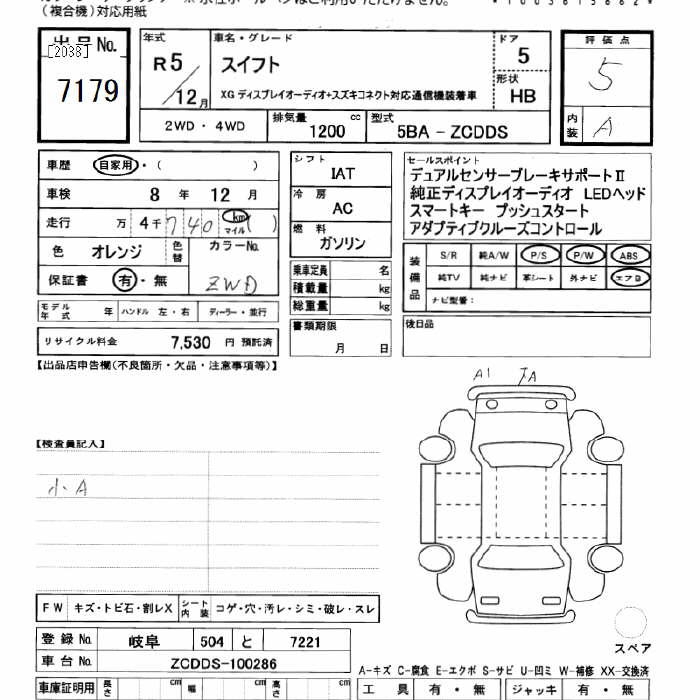 （複合機）対応用紙
出品No.
[2038]
7179
年式 車名・グレード ドア
R5/12月 スイフト 5
XG ディスプレイオーディオ+スズキコネクト対応通信機装着車
形状 HB
2WD・4WD 排気量 1200 cc 型式 5BA-ZCDDS
評価点
5
内装 A
車歴 自家用・（ ）
車検 8年 12月
走行 万 4千740 km マイル ( )
色 オレンジ 色替 カラーNo.
保証書 有・無 ZWD
モデル年式 年 ハンドル 左・右 ディーラー・並行
リサイクル料金 7,530 円 預託済
シフト IAT
冷房 AC
燃料 ガソリン
乗車定員 名
積載量 kg
総重量 kg
書類期限
月 日
セールスポイント
デュアルセンサーブレーキサポートⅡ
純正ディスプレイオーディオ LEDヘッド
スマートキー プッシュスタート
アダプティブクルーズコントロール
装備品 S/R 純A/W P/S P/W ABS
純TV 純ナビ 革シート 外ナビ エアB
ナビ型番：
後日品
【出品店申告欄(不良箇所・欠品・注意事項等)】
A1 A
【検査員記入】
小A
FW キズ・トビ石・割レX シート内装 コゲ・穴・汚レ・シミ・破レ・スレ
登録No. 岐阜 504 と 7221
車台No. ZCDDS-100286
車庫証明用 長さ cm 幅 cm 高さ cm
スペア
A-キズ C-腐食 E-エクボ S-サビ U-凹ミ W-補修 XX-交換済
工具 有・無 ジャッキ 有・無